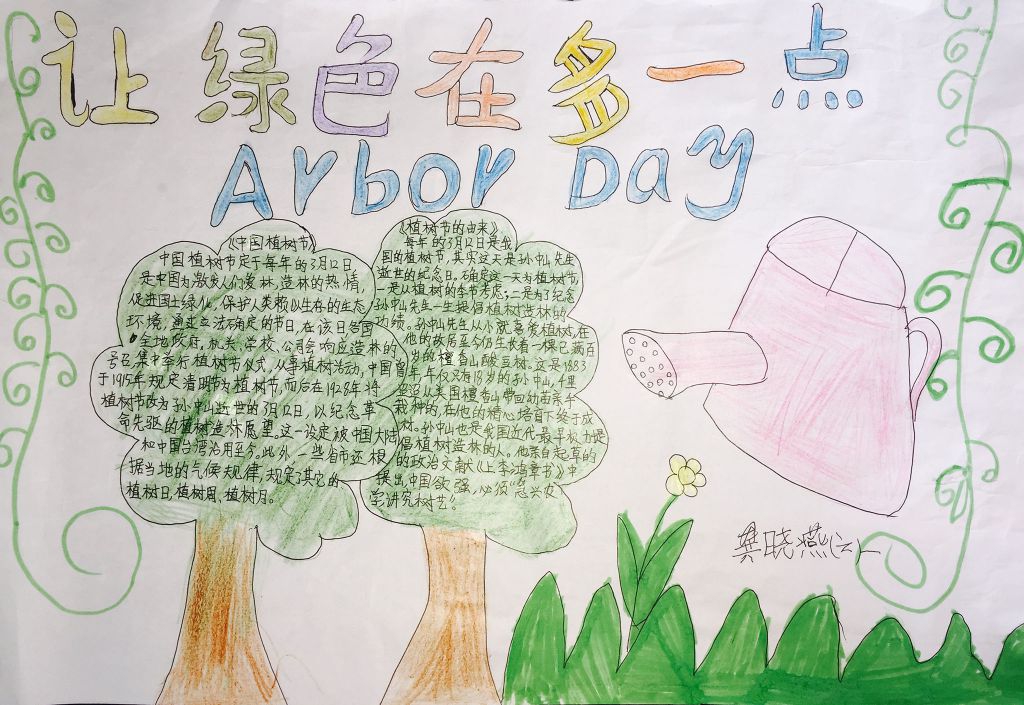 让绿色在多一点
Arbor Day
《中国植树节》
中国植树节定于每年的3月12日
是中国为激发人们爱林,造林的热情,
促进国土绿化,保护人类赖以生存的生态
环境,通过立法确定的节日,在该日各国
全地政府,机关,学校,公司会响应造林的
号召,集中举行植树节仪式,从事植树活动,中国曾
于1915年规定清明节为植树节,而后在1928年将
植树节改为孙中山逝世的3月12日,以纪念革
命先驱的植树造林愿望。这一设定被中国大陆
和中国台湾沿用至今。此外,一些省市还根
据当地的气候规律,规定了其它的
植树日,植树周,植树月。
《植树节的由来》
每年的3月12日是我
国的植树节,其实这天是孙中山先生
逝世的纪念日,确定这一天为植树节,
一是从植树的季节考虑,二是为了纪念
孙中山先生一生提倡植树造林的
功绩。孙中山先生从小就喜爱植树,在
他的故居至今仍生长着一棵已病百
出的檀香山酸豆树。这是1883
年年仅只有18岁的孙中山,千里
迢迢从美国檀香山带回幼苗亲手
栽种的,在他的精心培育下终于成
材。孙中山也是我国近代最早极力提
倡植树造林的人。他亲自起草的
的政治文献《上李鸿章书》中
提出中国欲强,必须“急兴农
学,讲究树艺”。
龚晓燕